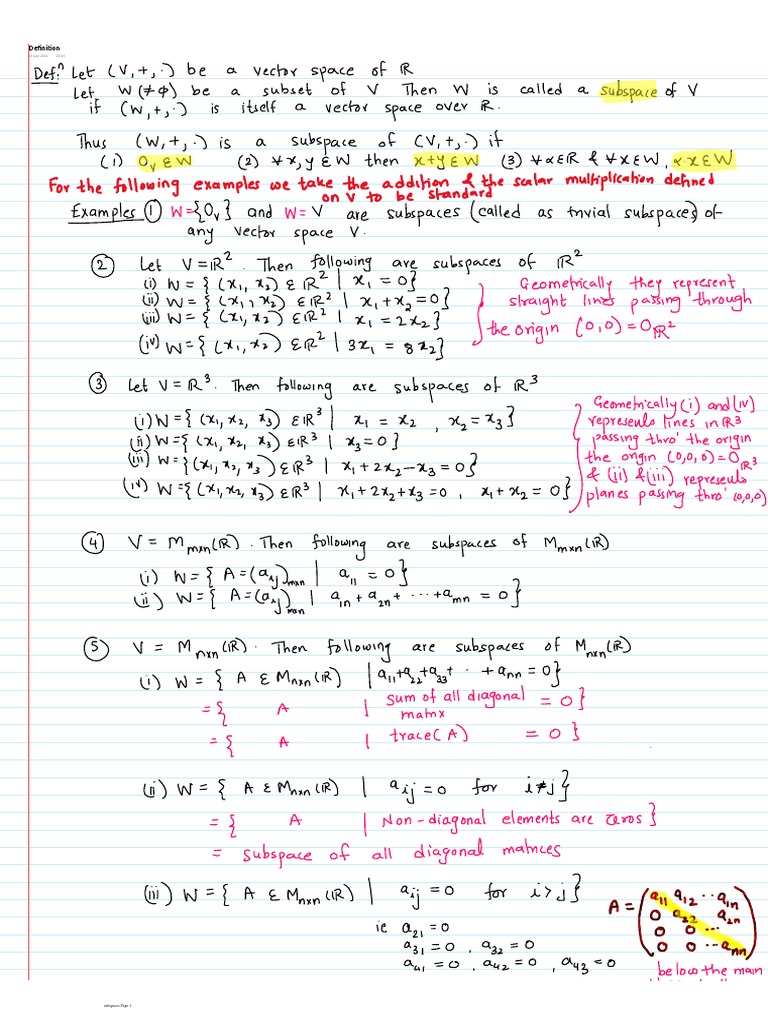 Definition
Defⁿ: Let (V, +, ·) be a vector space of ℝ
Let W (≠ϕ) be a subset of V Then W is called a subspace of V
if (W, +, ·) is itself a vector space over ℝ.
Thus (W, +, ·) is a subspace of (V, +, ·) if
(1) 0ᵥ ∈ W (2) ∀ x, y ∈ W then x+y ∈ W (3) ∀ α∈ℝ & ∀ x∈W, α·x ∈ W
For the following examples we take the addition & the scalar multiplication defined
on V to be standard
Examples ① W={0ᵥ} and W=V are subspaces (called as trivial subspaces) of
any vector space V.
② Let V=ℝ². Then following are subspaces of ℝ²
(i) W = { (x₁, x₂) ∈ ℝ² | x₁ = 0}
(ii) W = { (x₁, x₂) ∈ ℝ² | x₁+x₂ = 0}
(iii) W = { (x₁, x₂) ∈ ℝ² | x₁ = 2x₂}
(iv) W = { (x₁, x₂) ∈ ℝ² | 3x₁ = 8x₂}
Geometrically they represent
straight lines passing through
the origin (0,0) = 0_ℝ²
③ Let V=ℝ³. Then following are subspaces of ℝ³
(i) W = { (x₁, x₂, x₃) ∈ ℝ³ | x₁ = x₂ , x₂ = x₃}
(ii) W = { (x₁, x₂, x₃) ∈ ℝ³ | x₃ = 0}
(iii) W = {(x₁, x₂, x₃) ∈ ℝ³ | x₁+2x₂-x₃ = 0}
(iv) W = {(x₁, x₂, x₃) ∈ ℝ³ | x₁+2x₂+x₃ = 0 , x₁+x₂ = 0}
Geometrically (i) and (iv)
represents lines in ℝ³
passing thro' the origin
the origin (0,0,0) = 0_ℝ³
& (ii) & (iii) represents
planes passing thro' (0,0,0)
④ V = Mₘₓₙ(ℝ). Then following are subspaces of Mₘₓₙ(ℝ)
(i) W = { A = (aᵢⱼ)ₘₓₙ | a₁₁ = 0}
(ii) W = { A = (aᵢⱼ)ₘₓₙ | a₁ₙ + a₂ₙ + ··· + aₘₙ = 0}
⑤ V = Mₙₓₙ(ℝ). Then following are subspaces of Mₙₓₙ(ℝ)
(i) W = { A ∈ Mₙₓₙ(ℝ) | a₁₁+a₂₂+a₃₃+ · · + aₙₙ = 0}
= { A | sum of all diagonal matrix = 0}
= { A | trace(A) = 0}
(ii) W = { A ∈ Mₙₓₙ(ℝ) | aᵢⱼ = 0 for i≠j}
= { A | Non-diagonal elements are zeros}
= subspace of all diagonal matrices
(iii) W = { A ∈ Mₙₓₙ(ℝ) | aᵢⱼ = 0 for i>j}
ie a₂₁ = 0
a₃₁ = 0 , a₃₂ = 0
a₄₁ = 0 , a₄₂ = 0 , a₄₃ = 0
A = ( a₁₁ a₁₂ ·· a₁ₙ
0 a₂₂ ·· a₂ₙ
0 0 ···
0 0 ·· aₙₙ )
below the main
subspaces Page 1